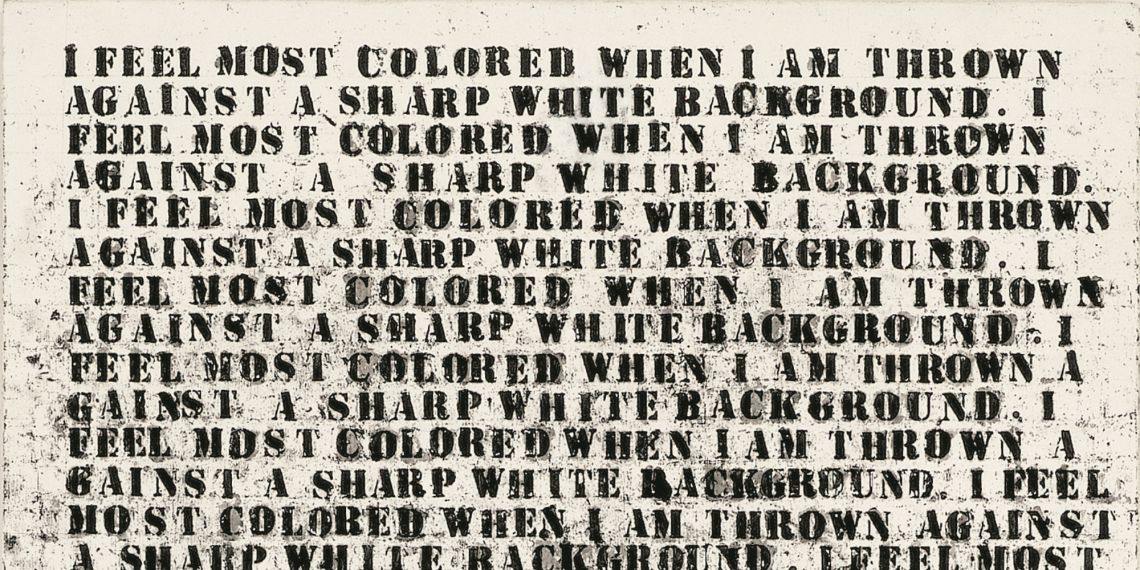 I FEEL MOST COLORED WHEN I AM THROWN
AGAINST A SHARP WHITE BACKGROUND. I
FEEL MOST COLORED WHEN I AM THROWN
AGAINST A SHARP WHITE BACKGROUND.
I FEEL MOST COLORED WHEN I AM THROWN
AGAINST A SHARP WHITE BACKGROUND. I
FEEL MOST COLORED WHEN I AM THROWN
AGAINST A SHARP WHITE BACKGROUND. I
FEEL MOST COLORED WHEN I AM THROWN A
GAINST A SHARP WHITE BACKGROUND. I
FEEL MOST COLORED WHEN I AM THROWN A
GAINST A SHARP WHITE BACKGROUND. I FEEL
MOST COLORED WHEN I AM THROWN AGAINST
A SHARP WHITE BACKGROUND. I FEEL MOST